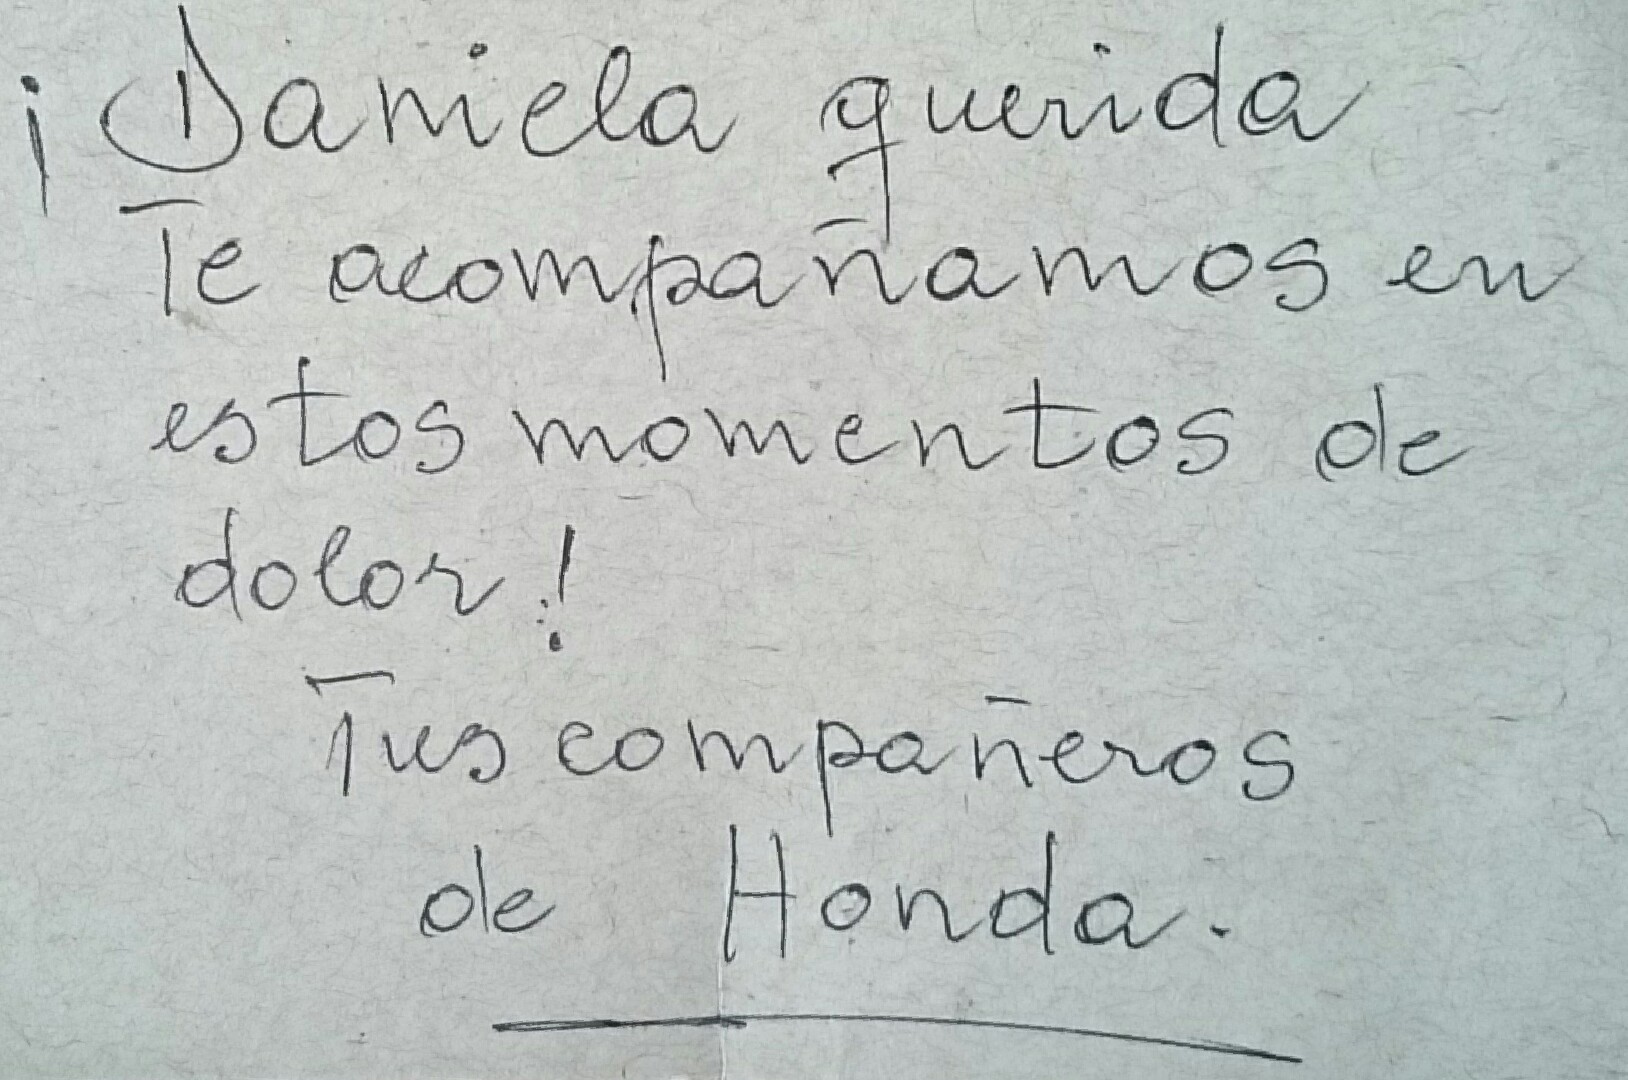 ¡Daniela querida
Te acompañamos en
estos momentos de
dolor!
Tus compañeros
de Honda.